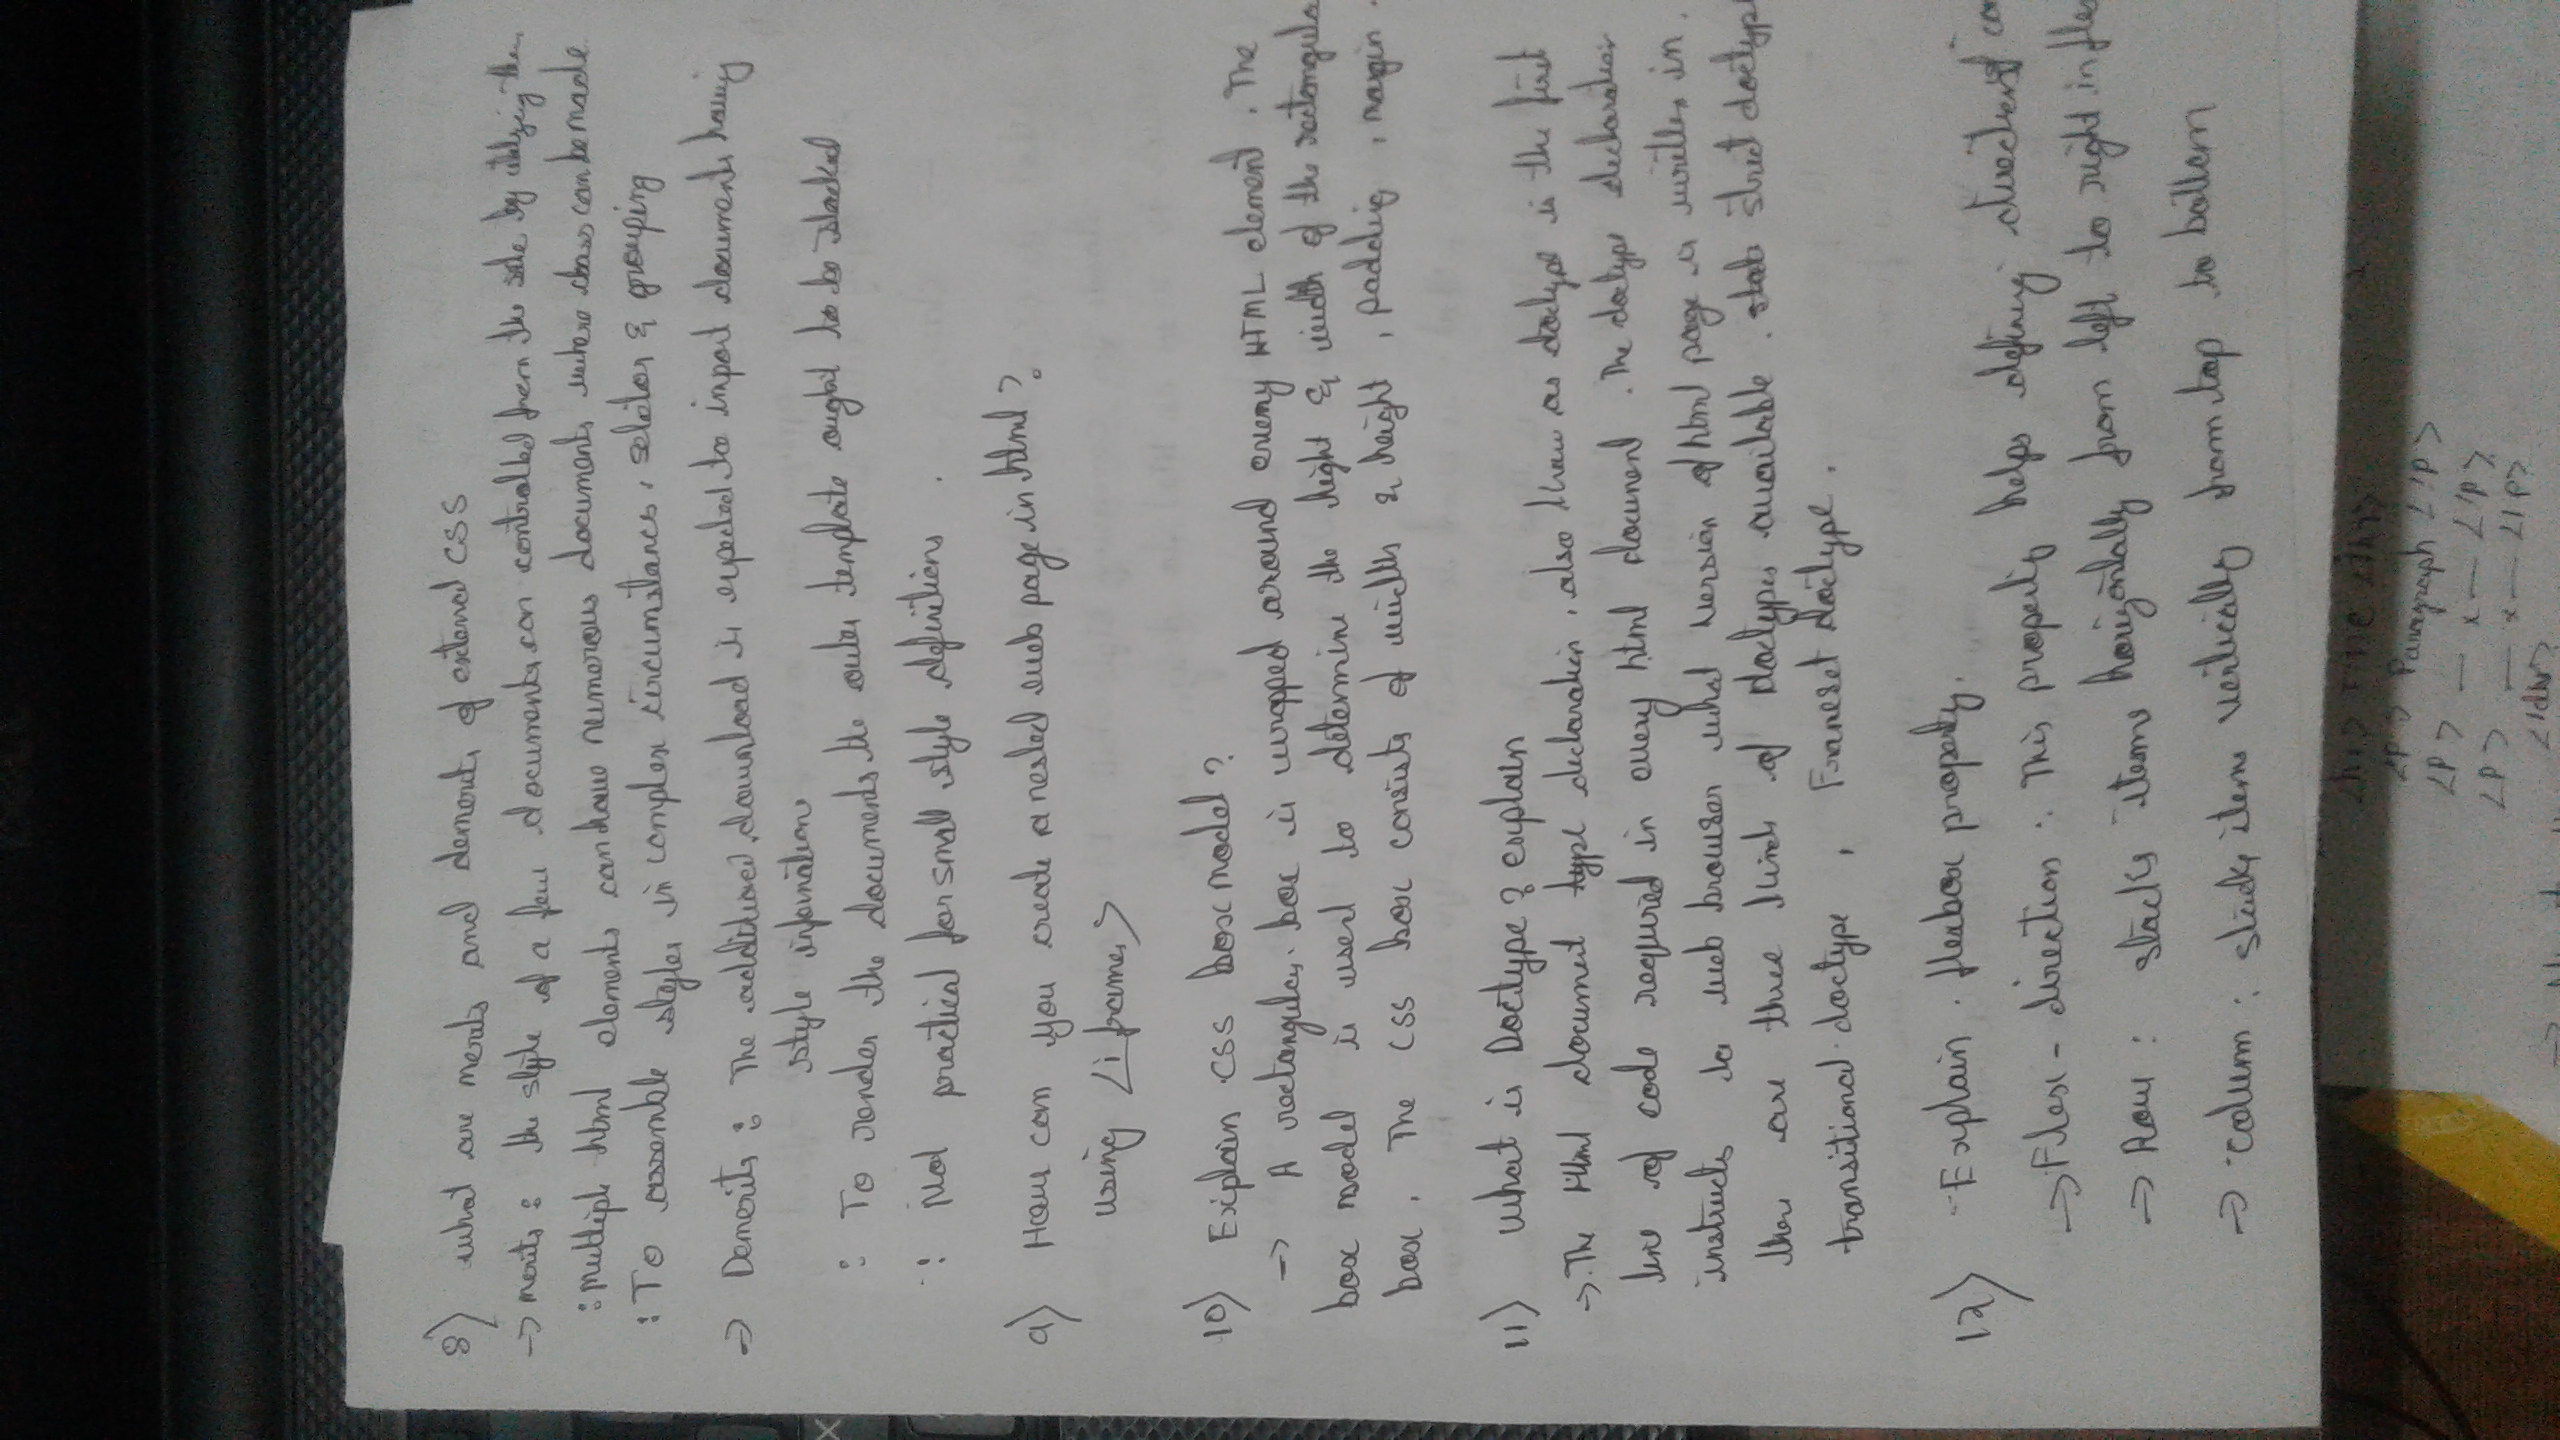 8) what are merits and demerits of external CSS
→ merits : the style of a few documents can controlled from the site by utilizing them
: Multiple html elements can have numerous documents where class can be made
: To assemble styles in complex circumstances, selctor & grouping
→ Demerits : The additional download is expected to import documents having
style information
: To render the documents the outer template ought to be stacked
: Not practical for small style definitions .
9) How can you create a nested web page in html ?
using <iframes>
10) Explain CSS box model ?
→ A rectangular box is wrapped around every HTML element . The
box model is used to determine the hight & width of the rectangula
box . The CSS box consists of width & height , padding , margin .
11) What is Doctype ? explain
→ The Html document type declaration , also know as doctype is the first
line of code required in every html document . The doctype declaration
instructs to web browser what version of html page is written in .
there are three kinds of doctypes available . strict doctype
transitional doctype , Frameset doctype .
12) Explain flexbox property .
→ Flex - direction : This property helps defining direction of co
→ Row : stacks items horizontally from left to right in fle
→ column : stacks items vertically from top to bottom
<P> Paragraph </P>
<P> — x — </P>
<P> — x — </P>
</div>